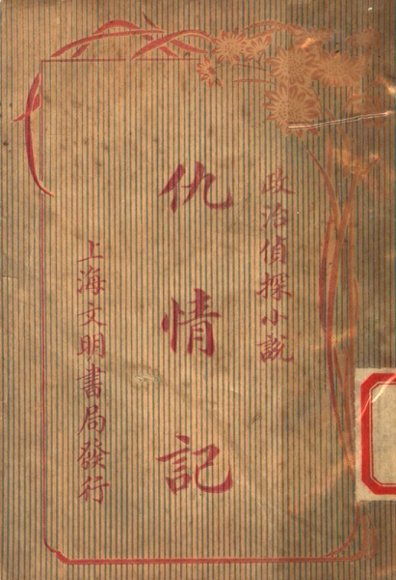 政治偵探小說
仇情記
上海文明書局發行